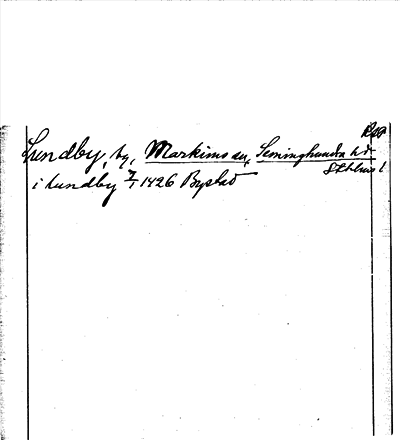 Lundby, by, Markims sn, Seminghundra hd
Sthlms l
i lundby 7/1 1426 Bystad